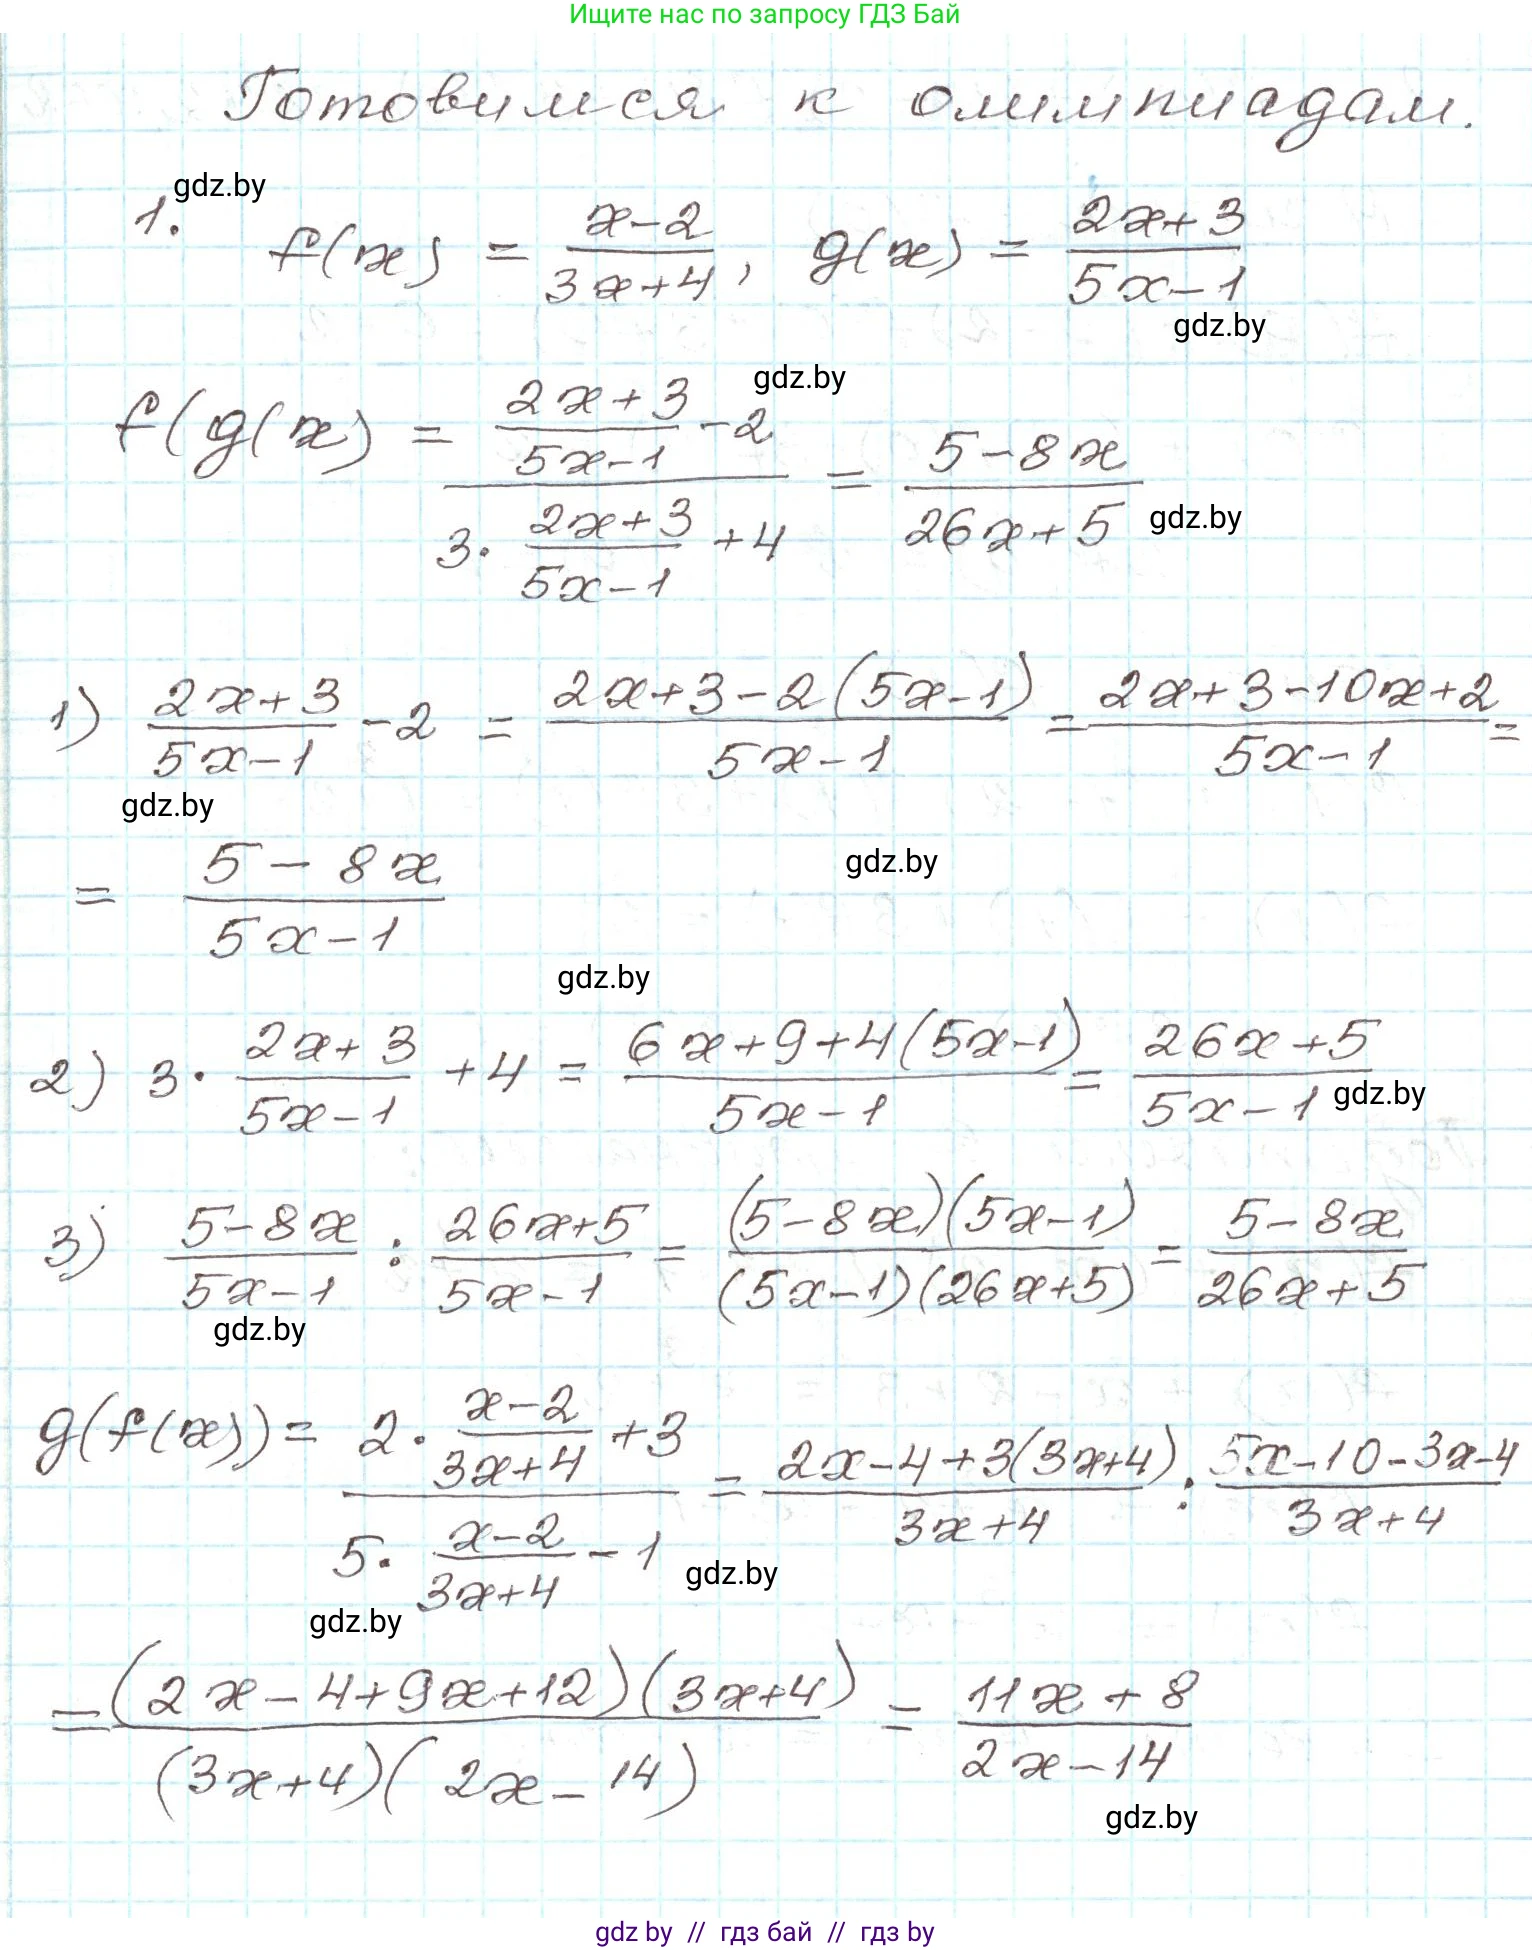 Ищите нас по запросу ГДЗ Бай
Готовимся к олимпиадам.
gdz.by
1. f(x) = (x-2)/(3x+4), g(x) = (2x+3)/(5x-1)
gdz.by
gdz.by
f(g(x) = ((2x+3)/(5x-1) - 2)/(3·(2x+3)/(5x-1) + 4) = (5-8x)/(26x+5)
gdz.by
1) (2x+3)/(5x-1) - 2 = (2x+3-2(5x-1))/(5x-1) = (2x+3-10x+2)/(5x-1) =
gdz.by
= (5-8x)/(5x-1)
gdz.by
gdz.by
2) 3·(2x+3)/(5x-1) + 4 = (6x+9+4(5x-1))/(5x-1) = (26x+5)/(5x-1)
gdz.by
3) (5-8x)/(5x-1) : (26x+5)/(5x-1) = ((5-8x)(5x-1))/((5x-1)(26x+5)) = (5-8x)/(26x+5)
gdz.by
g(f(x)) = (2·(x-2)/(3x+4) + 3)/(5·(x-2)/(3x+4) - 1) = (2x-4+3(3x+4))/(3x+4) : (5x-10-3x-4)/(3x+4)
gdz.by
gdz.by
= ((2x-4+9x+12)(3x+4))/((3x+4)(2x-14)) = (11x+8)/(2x-14)
gdz.by
gdz by // гдз бай // гдз by